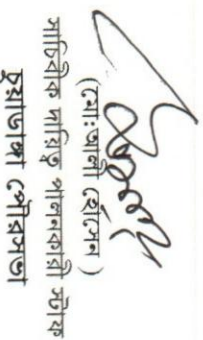 (মো:আলী হোসেন)
সার্বিক দায়িত্ব পালনকারী স্টাফ
চুয়াডাঙ্গা পৌরসভা